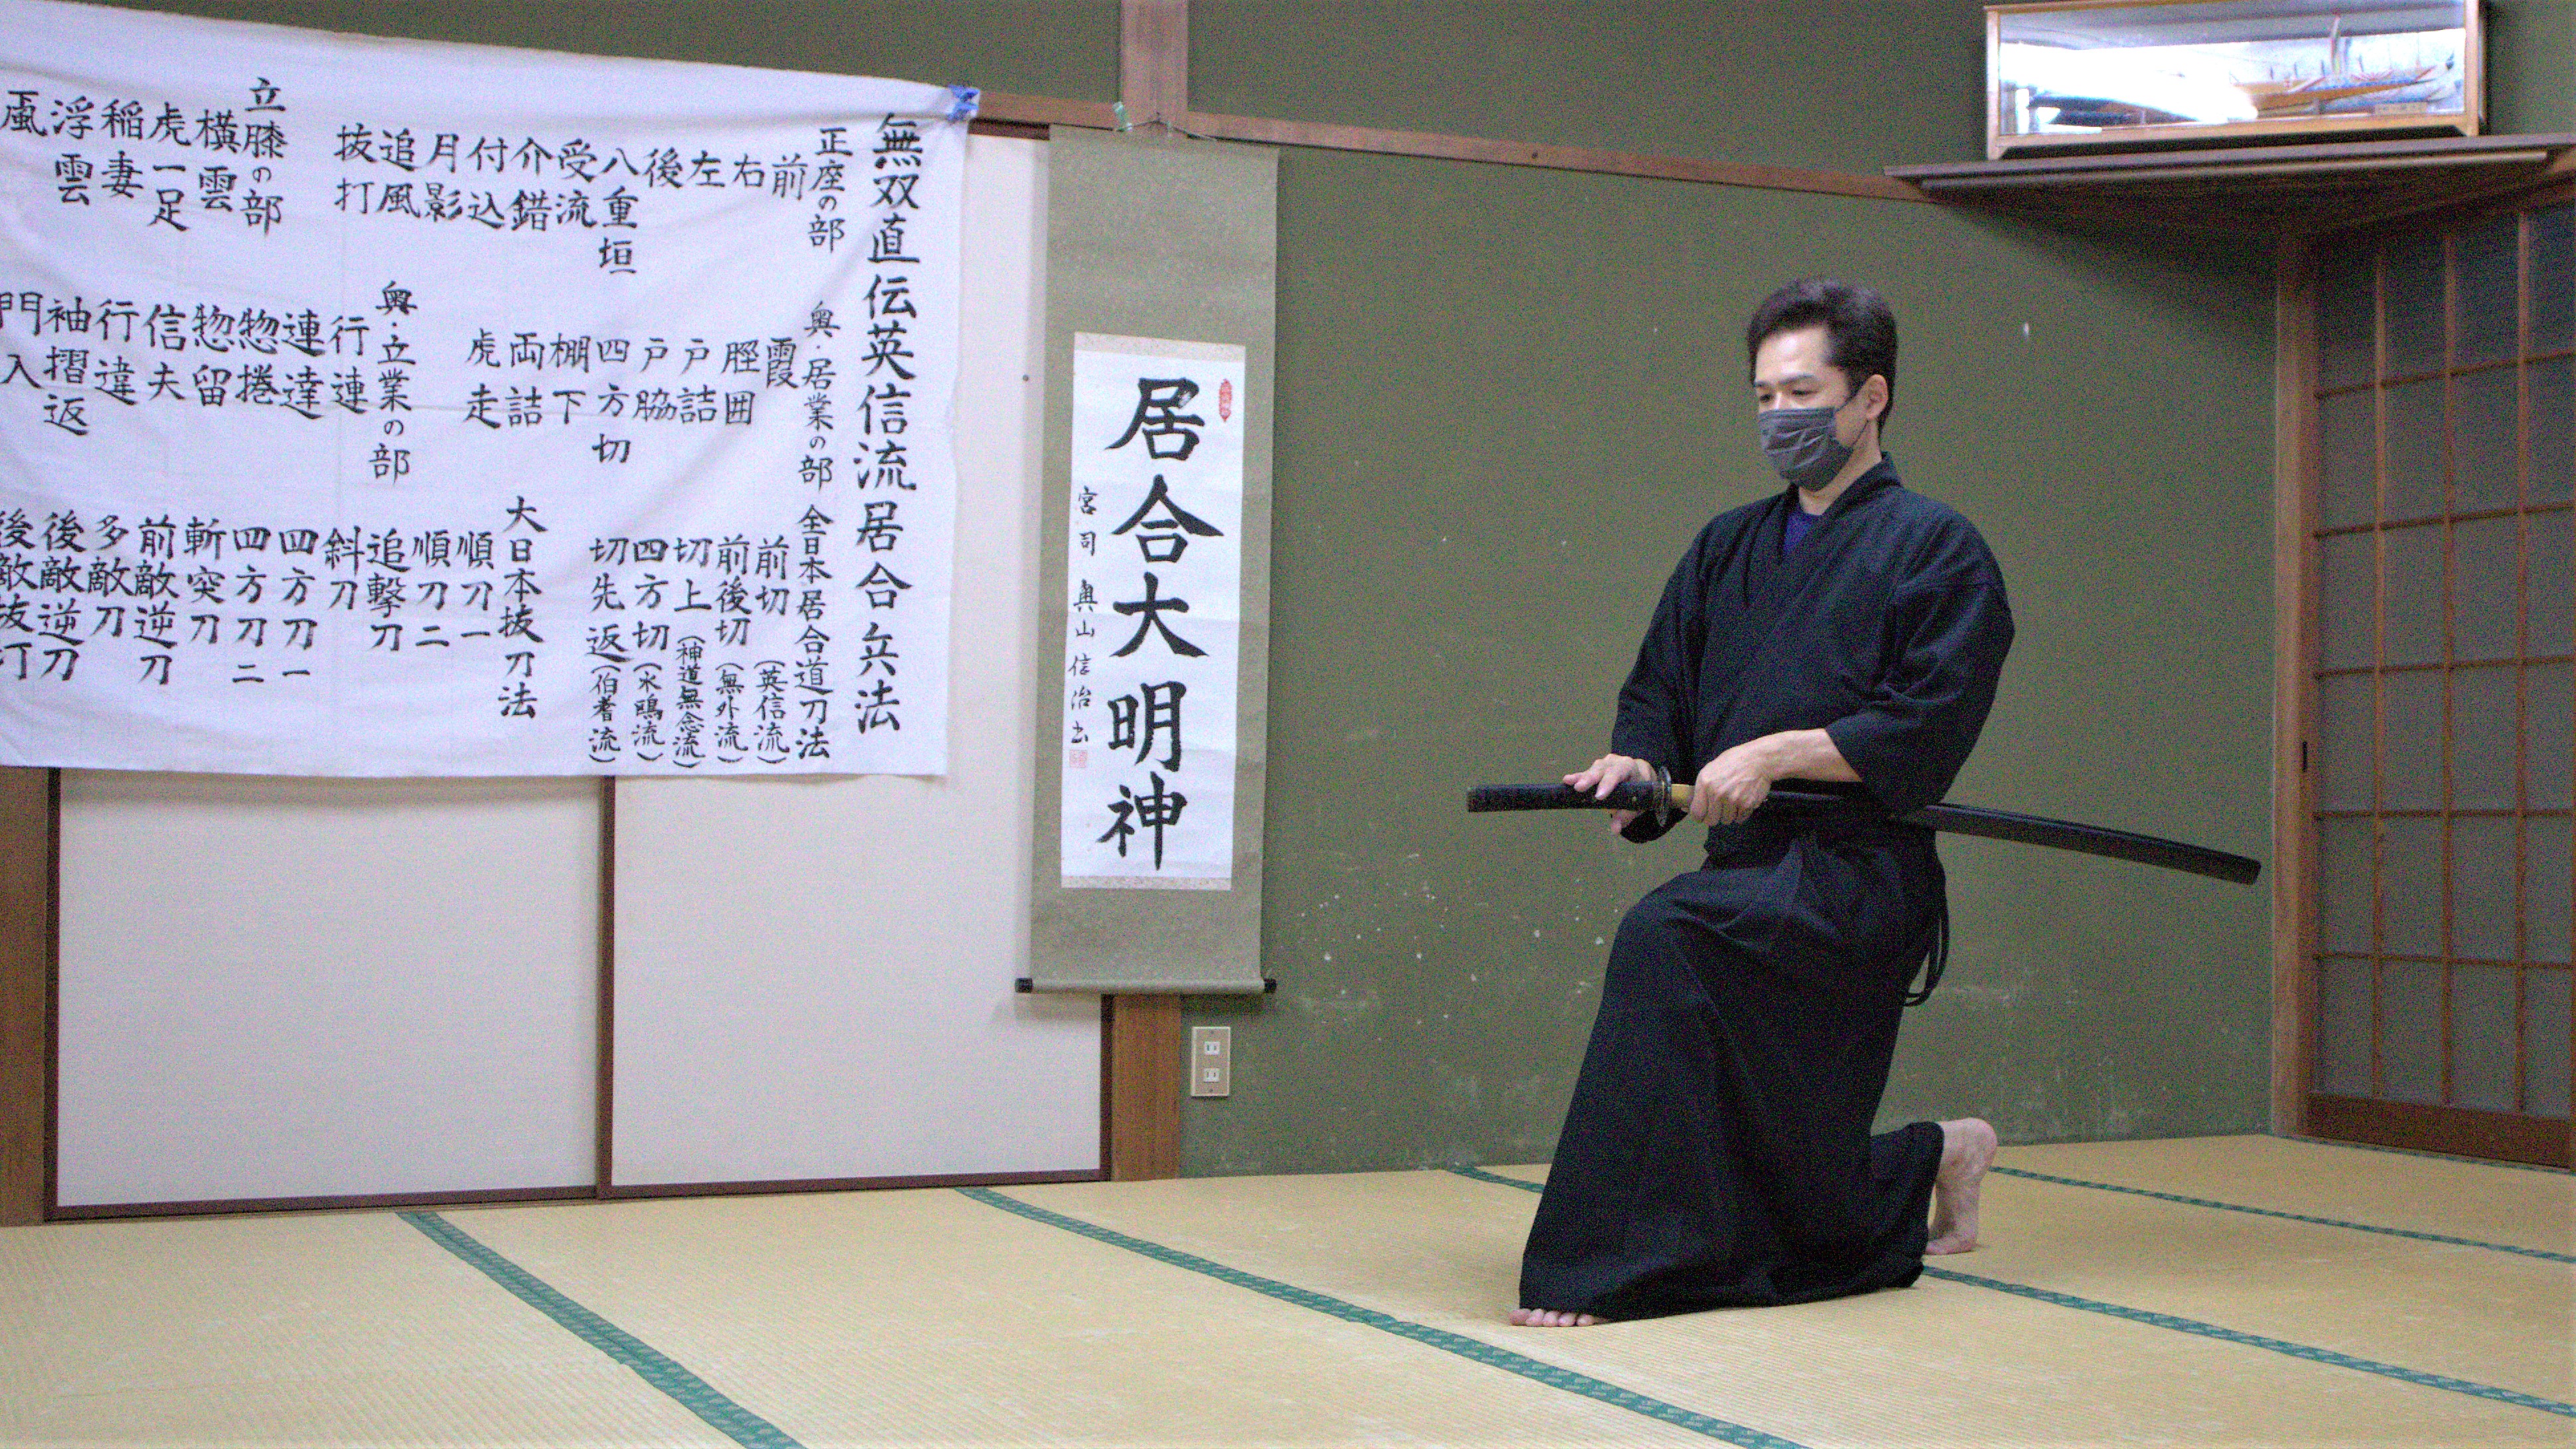 居合大明神
宮司 奥山信治書
無双直伝英信流居合兵法
正座の部
前
右
左
後
八重垣
受流
介錯
付込
月影
追風
抜打
立膝の部
横雲
虎一足
稲妻
浮雲
奥・居業の部
霞
脛囲
戸詰
戸脇
四方切
棚下
両詰
虎走
奥・立業の部
行連
連達
惣捲
惣留
信夫
行違
袖摺返
門入
全日本居合道刀法
前切(英信流)
前後切(無外流)
切上(神道無念流)
四方切(水鴎流)
切先返(伯耆流)
大日本抜刀法
順刀一
順刀二
追撃刀
斜刀
四方刀一
四方刀二
斬突刀
前敵逆刀
多敵刀
後敵逆刀
後敵抜打